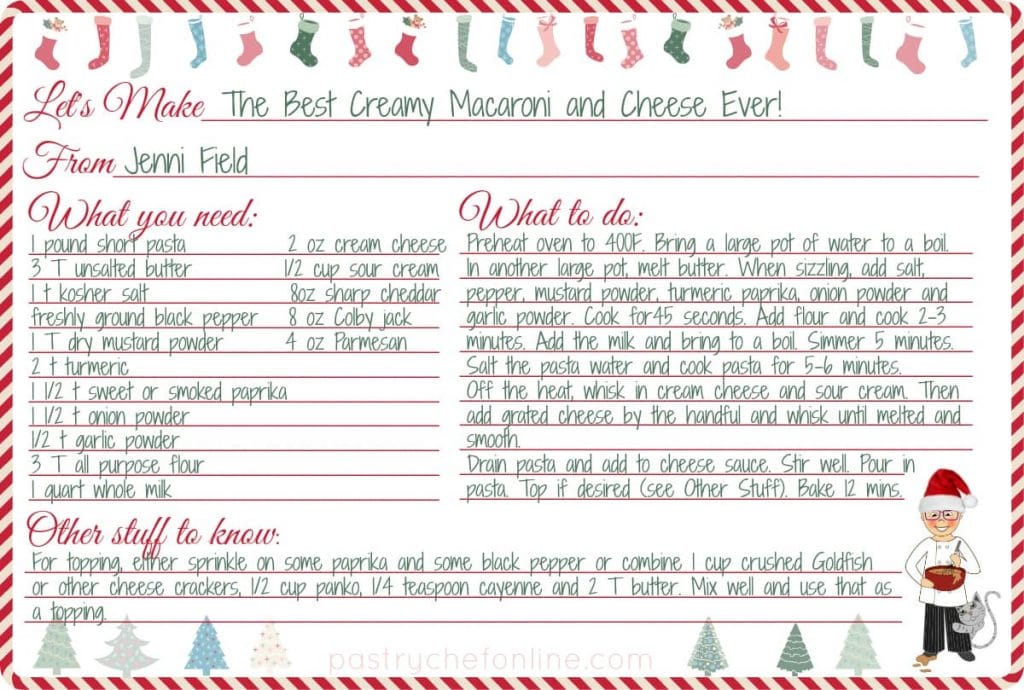 Let's Make The Best Creamy Macaroni and Cheese Ever!
From Jenni Field
What you need:
1 pound short pasta
3 T unsalted butter
1 t kosher salt
freshly ground black pepper
1 T dry mustard powder
2 t turmeric
1 1/2 t sweet or smoked paprika
1 1/2 t onion powder
1/2 t garlic powder
3 T all purpose flour
1 quart whole milk
2 oz cream cheese
1/2 cup sour cream
8oz sharp cheddar
8 oz Colby jack
4 oz Parmesan
What to do:
Preheat oven to 400F. Bring a large pot of water to a boil.
In another large pot, melt butter. When sizzling, add salt,
pepper, mustard powder, turmeric paprika, onion powder and
garlic powder. Cook for45 seconds. Add flour and cook 2-3
minutes. Add the milk and bring to a boil. Simmer 5 minutes.
Salt the pasta water and cook pasta for 5-6 minutes.
Off the heat, whisk in cream cheese and sour cream. Then
add grated cheese by the handful and whisk until melted and
smooth.
Drain pasta and add to cheese sauce. Stir well. Pour in
pasta. Top if desired (see Other Stuff). Bake 12 mins.
Other stuff to know:
For topping, either sprinkle on some paprika and some black pepper or combine 1 cup crushed Goldfish
or other cheese crackers, 1/2 cup panko, 1/4 teaspoon cayenne and 2 T butter. Mix well and use that as
a topping.
pastrychefonline.com